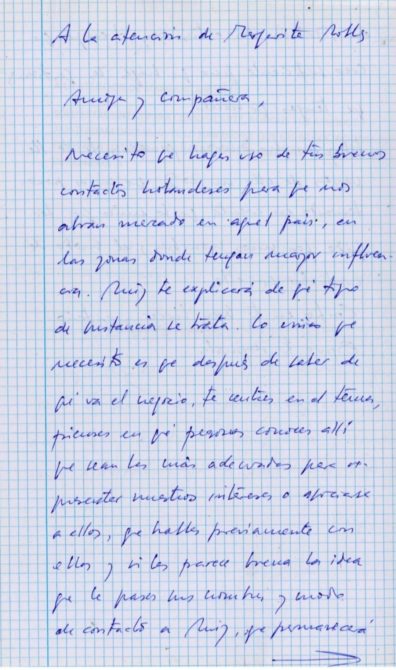 A la atención de Margarita Robles
Amiga y compañera,
Necesito qe hagas uso de tus buenos
contactos holandeses para qe nos
abran mercado en aquel país, en
las zonas donde tengan mayor influen-
cia. Ruiz te explicará de qé tipo
de sustancia se trata. Lo único qe
necesito es qe después de saber de
qé va el negocio, te centres en el tema,
pienses en qé personas conoces allí
qe sean las más adecuadas para re-
presentar nuestros intereses o asociarse
a ellos, qe hables previamente con
ellos y si les parece buena la idea
qe le pases sus nombres y modo
de contacto a Ruiz, qe permanecerá